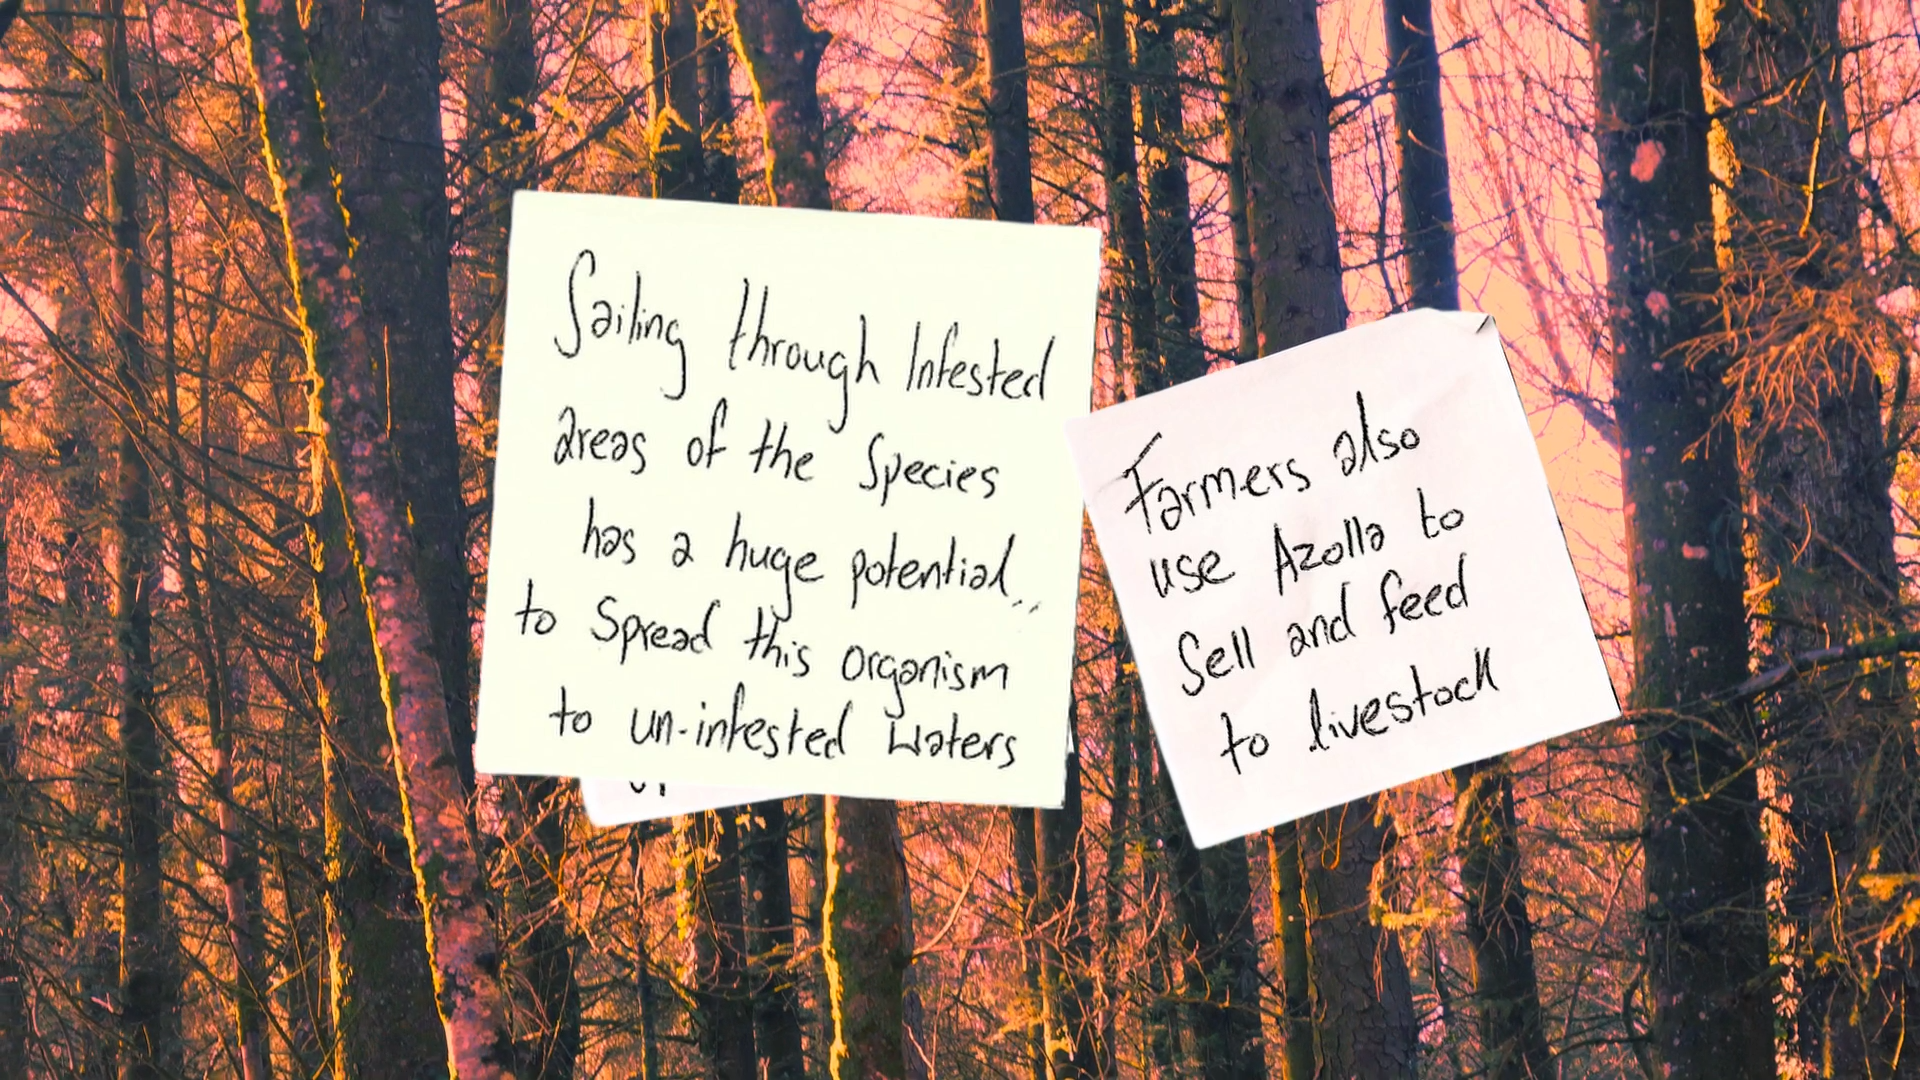 Sailing through Infested
areas of the Species
has a huge potential..
to Spread this organism
to un-infested waters
Farmers also
use Azolla to
Sell and feed
to livestock